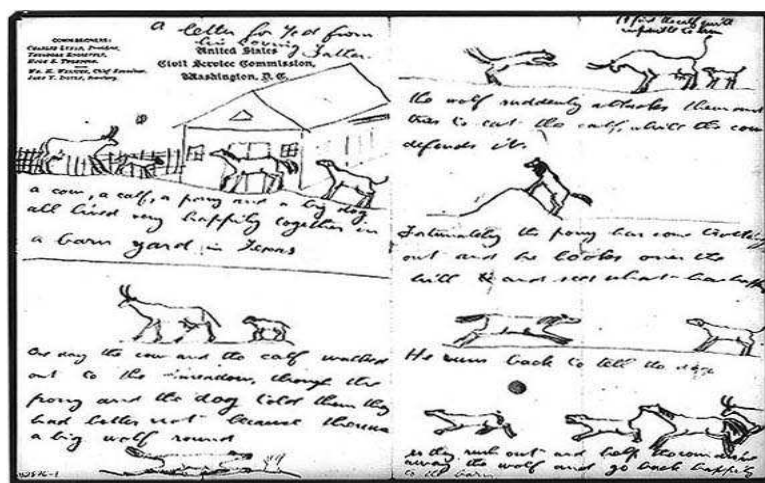 a letter for Ted from
his loving Father
COMMISSIONERS:
CHARLES LYMAN, President,
THEODORE ROOSEVELT,
HUGH S. THOMPSON.
Chief Examiner.
JOHN T. DOYLE, Secretary.
United States
Civil Service Commission,
Washington, D. C.
a cow, a calf, a pony and a big dog
all lived very happily together in
a barn yard in Texas
One day the cow and the calf walked
out to the meadow, though the
pony and the dog told them they
had better not because there was
a big wolf round
the wolf suddenly attacks them and
tries to eat the calf, while the cow
defends it
Fortunately the pony has come trotting
out and he looks over the
hill and sees what has happ
He runs back to tell the dog
so they rush out and help the cow drive
away the wolf and go back happily
to the barn